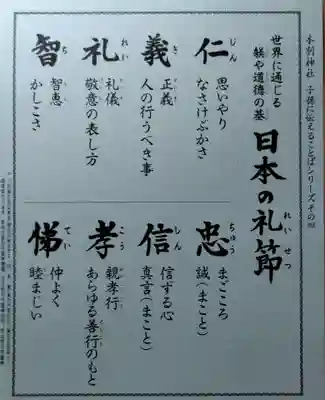 本別神社 子孫に伝えることばシリーズその四
世界に通じる
躾や道徳の基
日本の礼節
れいせつ
仁
じん
思いやり
なさけぶかさ
義
ぎ
正義
人の行うべき事
礼
れい
礼儀
敬意の表し方
智
ち
智恵
かしこさ
忠
ちゅう
まごころ
誠(まこと)
信
しん
信ずる心
真言(まこと)
孝
こう
親孝行
あらゆる善行のもと
悌
てい
仲よく
睦まじい